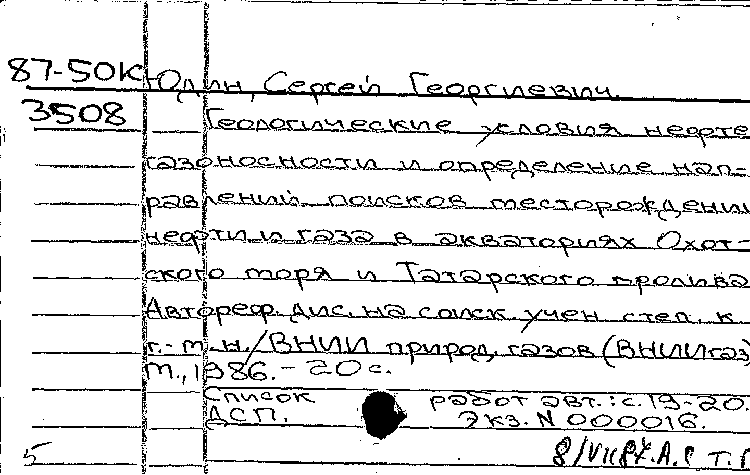 87-50К Юдин, Сергей Георгиевич.
3508 Геологические условия нефте
газоносности и определение нап-
равлений поисков месторождений
нефти и газа в акваториях Охот-
ского моря и Татарского пролива
Автореф. дис. на соиск. учен степ. к.
г.-м.н./ВНИИ природ. газов (ВНИИгаз)
М., 1986. - 20 с.
Список работ авт.: с. 19-20.
ДСП. Экз. N 000016.
5 8/VII87. А.Р Т.1